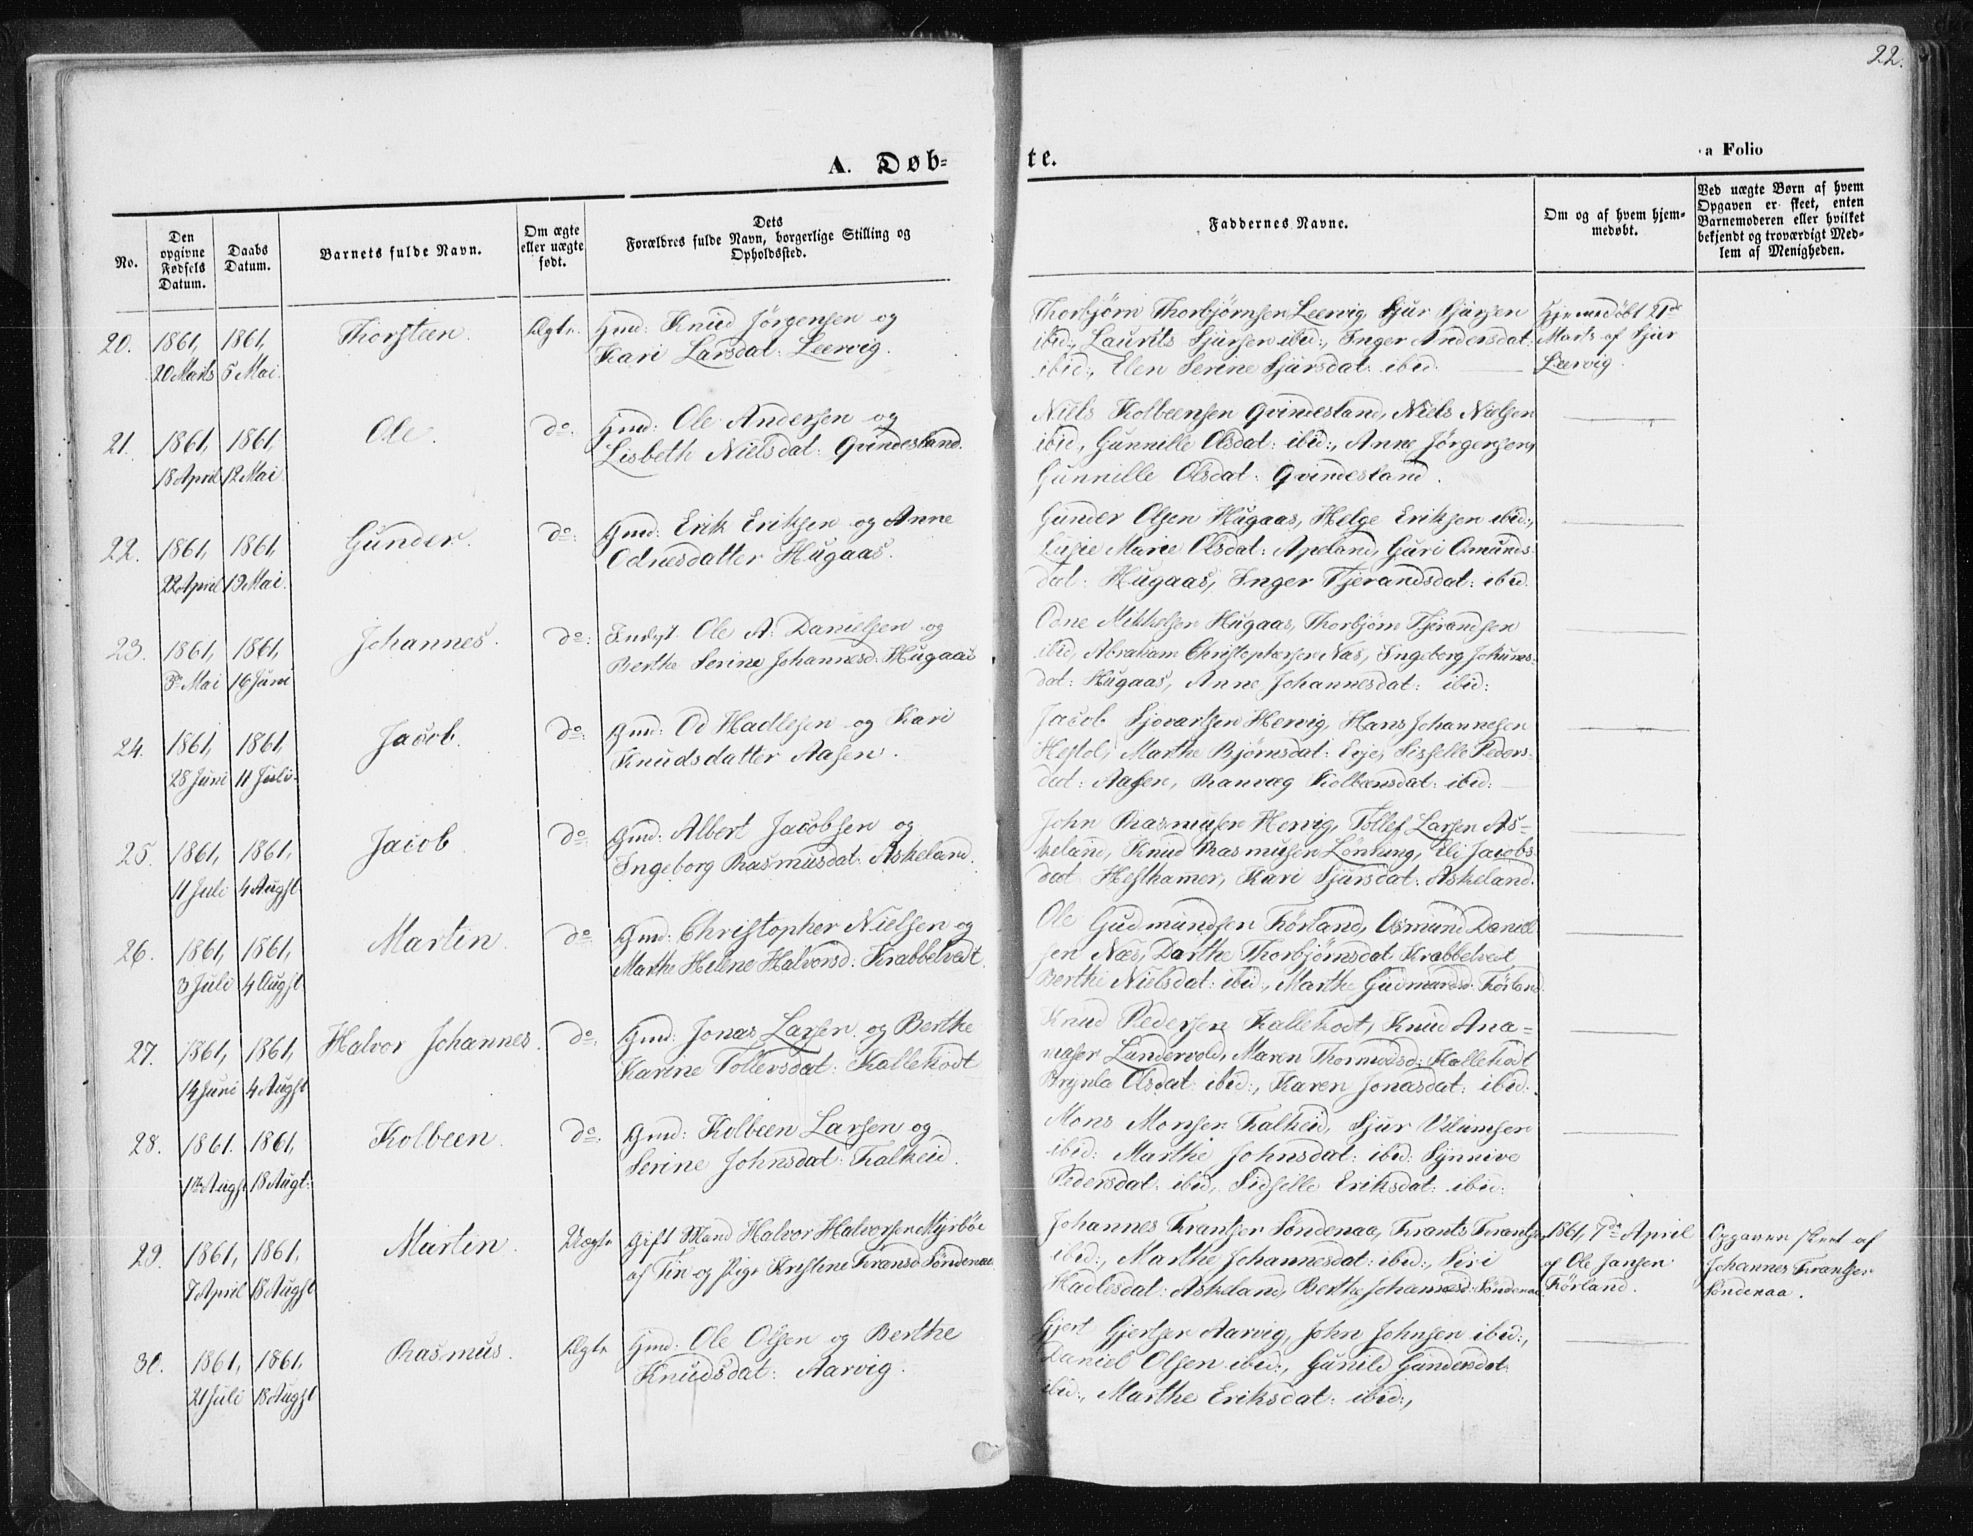 22.
A. Døb=
te.
a Folio
No.
Den opgivne Fødsels Datum.
Daabs Datum.
Barnets fulde Navn.
Om ægte eller uægte født.
Dets
Forældres fulde Navn, borgerlige Stilling og
Opholdssted.
Faddernes Navne.
Om og af hvem hjem-
medøbt.
Ved uægte Børn af hvem
Opgaven er skeet, enten
Barnemoderen eller hvilket
bekjendt og troværdigt Med-
lem af Menigheden.
20. 1861, 20 Marts 1861, 5 Mai Thorsteen. Ægte
Gmd: Knud Jørgensen og
Kari Larsdat: Leervig.
Thorbjørn Thorbjørnsen Leervig, Sjur Sjursen
ibid., Laurits Sjursen ibid:, Inger Andersdat:
ibid:, Elen Serine Sjursdat: ibid.
Hjemmedøbt 21de
Marts af Sjur
Leervig.
21. 1861, 18 April 1861, 12 Mai Ole. do.
Gmd: Ole Andersen og
Lisbeth Nielsdat: Qvindesland.
Niels Kolbeensen Qvindesland, Niels Nielsen
ibid, Gunnille Olsdat: ibid:, Anne Jørgensen,
Gunnille Olsdat: Qvindesland.
22. 1861, 22 April 1861, 19 Mai. Gunder. do:
Gmd: Erik Eriksen og Anne
Odnesdatter Hugaas.
Gunder Olsen Hugaas, Helge Eriksen ibid:,
Lusie Marie Olsdat: Apeland, Guri Osmunds-
dat: Hugaas, Inger Tjerandsdat: ibid.
23. 1861, 3de Mai 1861, 16 Juni Johannes. do:
Ole A: Danielsen og
Berthe Serine Johannesd: Hugaas
Odne Mikkelsen Hugaas, Thorbjørn Tjerandsen
ibid, Abraham Christophersen Næs, Ingeborg Johannes-
dat: Hugaas, Anne Johannesdat: ibid:
24. 1861, 28 Juni 1861, 11 Juli. Jacob. do:
Gmd: Od Hadlesen og Kari
Knudsdatter Aasen.
Jacob Sjovartsen Hervig, Hans Johannesen
Marthe Bjørnsdat: Eije, Sisselle Peders-
dat: Aasen, Ranvæg Kolbeensdat: ibid:
25. 1861, 11 Juli 1861, 4 Augst Jacob do:
Gmd: Albert Jacobsen og
Ingeborg Rasmusdat: Askeland.
John Rasmusen Hervig, Tollef Larsen As-
keland, Knud Rasmusen Lønning, Eli Jacobs-
dat Hesthamer, Kari Sjursdat: Askeland.
26. 1861, 3 Juli 1861, 4 Augst Martin. do:
Gmd: Christopher Nielsen og
Marthe Helene Halvorsd: Krabbetveit.
Ole Gudmundsen Førland, Osmund Daniel-
sen Næs, Dorthe Thorbjørnsdat Krabbetveit
Berthe Nielsdat: ibid:, Marthe Gudmundsd: Førland
27. 1861, 14 Juni 1861, 4 Augst Halvor Johannes. do:
Gmd: Jonas Larsen og Berthe
Karine Tollevsdat: Kallekodt
Knud Pedersen Kallekodt, Knud Ana-
niasen Landervold, Maren Thormodsd: Kallekodt
Brynla Olsdat: ibid:, Karen Jonasdat: ibid:
28. 1861. 1ste Augst 1861, 18 Augt. Kolbeen. do:
Gmd: Kolbeen Larsen og
Serine Johnsdat: Falkeid.
Mons Monsen Falkeid, Sjur Vilumsen
ibid: Marthe Johnsdat: ibid: Synnive
Pedersdat: ibid, Sidselle Eriksdat: ibid:
29. 1861, 7 April 1861, 18 Augst Martin. Uægte
Gift Mand Halvor Halvorsen Myrbøe
af Tin og Pige Kristine Fransd: Søndenaa
Johannes Frantsen Søndenaa, Frants Frantsen
ibid:, Marthe Johannesdat: ibid:, Siri
Hadlesdat: Askeland, Berthe Johannesd: Søndenaa.
1861, 7de April
af Ole Jansen
Førland.
Opgaven skeet af
Johannes Frantsen
Søndenaa.
30. 1861, 21 Juli 1861, 18 Augst Rasmus. Ægte
Gmd: Ole Olsen og Berthe
Knudsdat: Aarvig.
Gjert Gjertsen Aarvig, John Johnsen ibid:,
Daniel Olsen ibid:, Gunild Gundersdat:
ibid:, Marthe Eriksdat: ibid:,